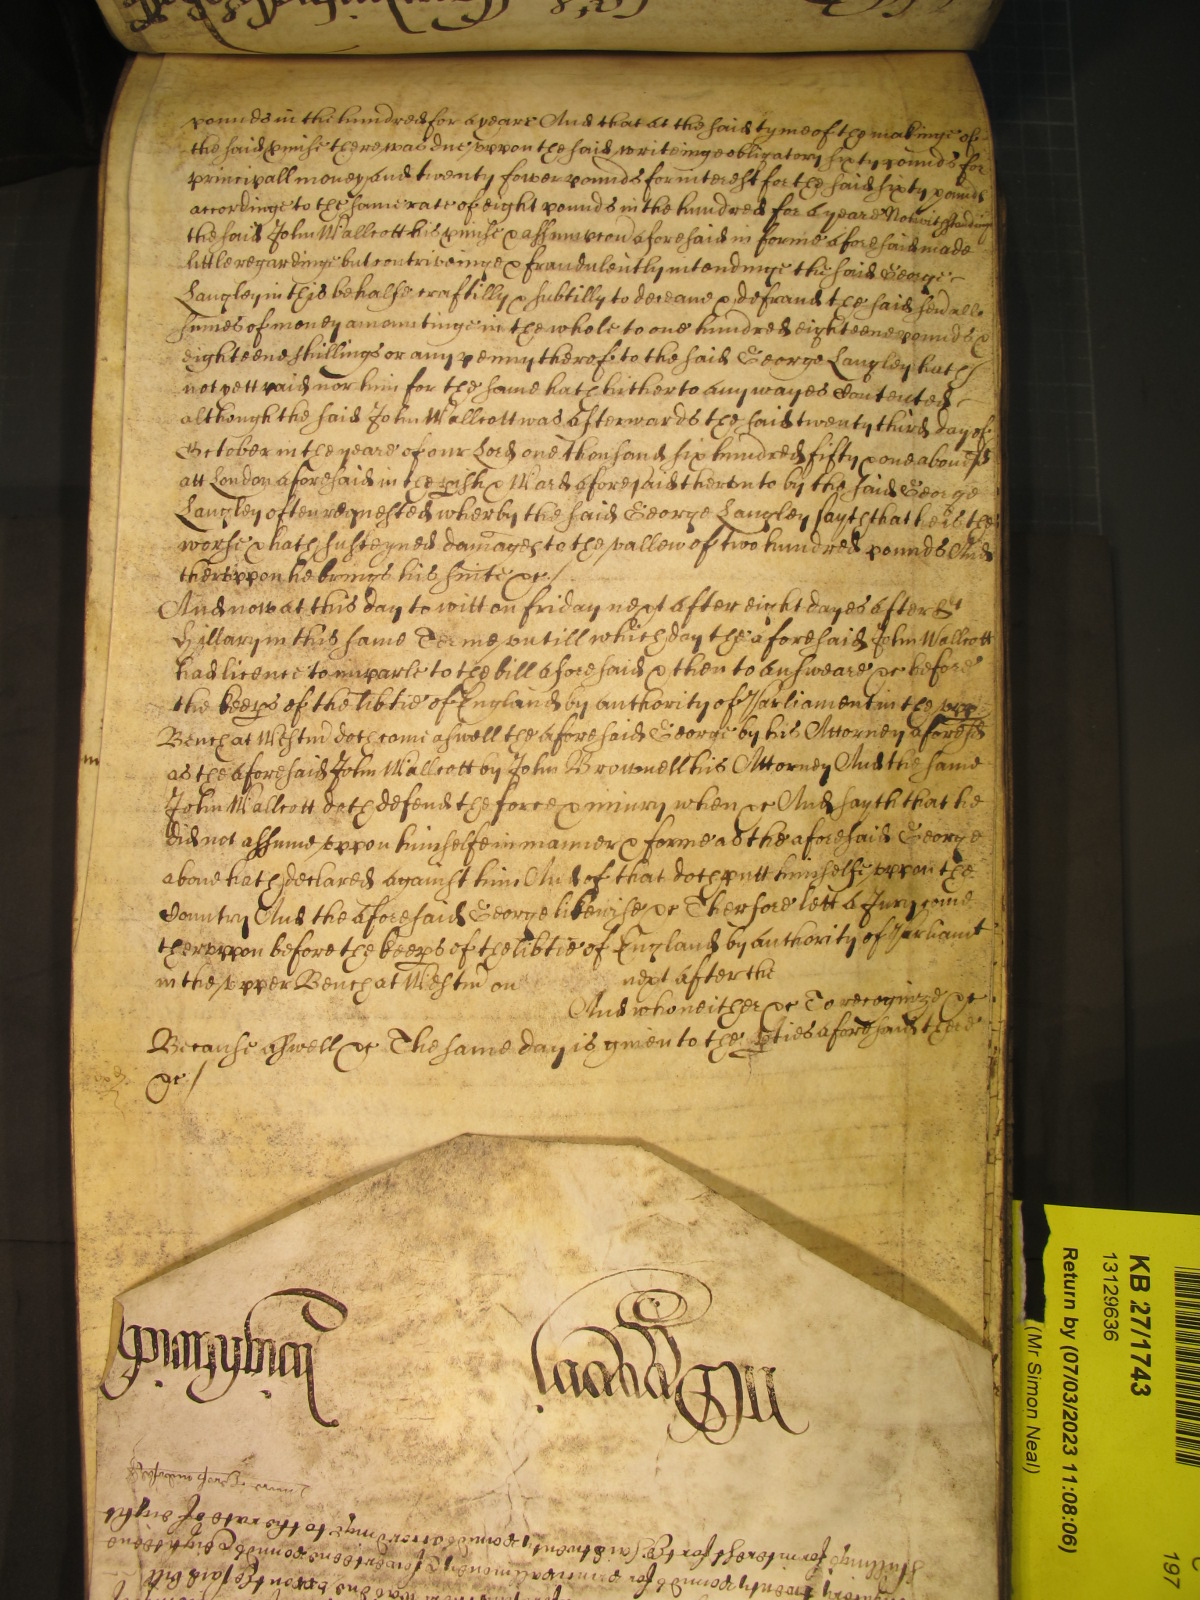 pounds in the hundred for a yeare And that at the said tyme of the makinge of
the said pmise there was due uppon the said writeinge obligatory sixty pounds for
principall money and twenty fower pounds for interest for the said sixty pounds
accordinge to the same rate of eight pounds in the hundred for a yeare Notwithstanding
the said John Wallcott his pmise & assumpcon aforesaid in forme aforesaid made
little regardinge but contriveinge & fraudulently intendinge the said George
Langley in this behalfe craftilly & subtilly to deceave & defraud the said sevrall
sumes of money amountinge in the whole to one hundred eighteene pounds &
eighteene shillings or any penny therof to the said George Langley hath
not yett paid nor him for the same hath hitherto any wayes Contented
althought the said John Wallcott was afterwards the said twenty third day of
October in the yeare of our Lord one thousand six hundred fifty & one abovesd
att London aforesaid in the pish & Ward aforesaid therunto by the said George
Langley often requested wherby the said George Langley sayth that he is the
worse & hath susteyned damages to the vallew of two hundred pounds And
theruppon he brings his suite &c /
And now at this day to witt on friday next after eight dayes after St
Hillary in this same Terme untill which day the aforesaid John Wallcott
had licence to imparle to the bill aforesaid & then to answeare &c before
the keeps of the libtie of England by authority of Parliament in the upp
Bench at Westm doth come aswell the aforesaid George by his Attorney aforesd
as the aforesaid John Wallcott by John Brownell his Attorney And the same
John Wallcott doth defend the force & iniury when &c And sayth that he
did not assume uppon himselfe in manner & forme as the aforesaid George
above hath declared against him And of that doth putt himselfe uppon the
Country And the aforesaid George likewise &c Therfore lett a Jury come
theruppon before the keeps of the libtie of England by authority of Parliamt
in the upper Bench at Westm on next after the
And who neither &c To recognize &c
Because aswell &c The same day is given to the pties aforesaid there
&c /
KB 27/1743
13129636
Return by (07/03/2023 11:08:06)
(Mr Simon Neal)
197